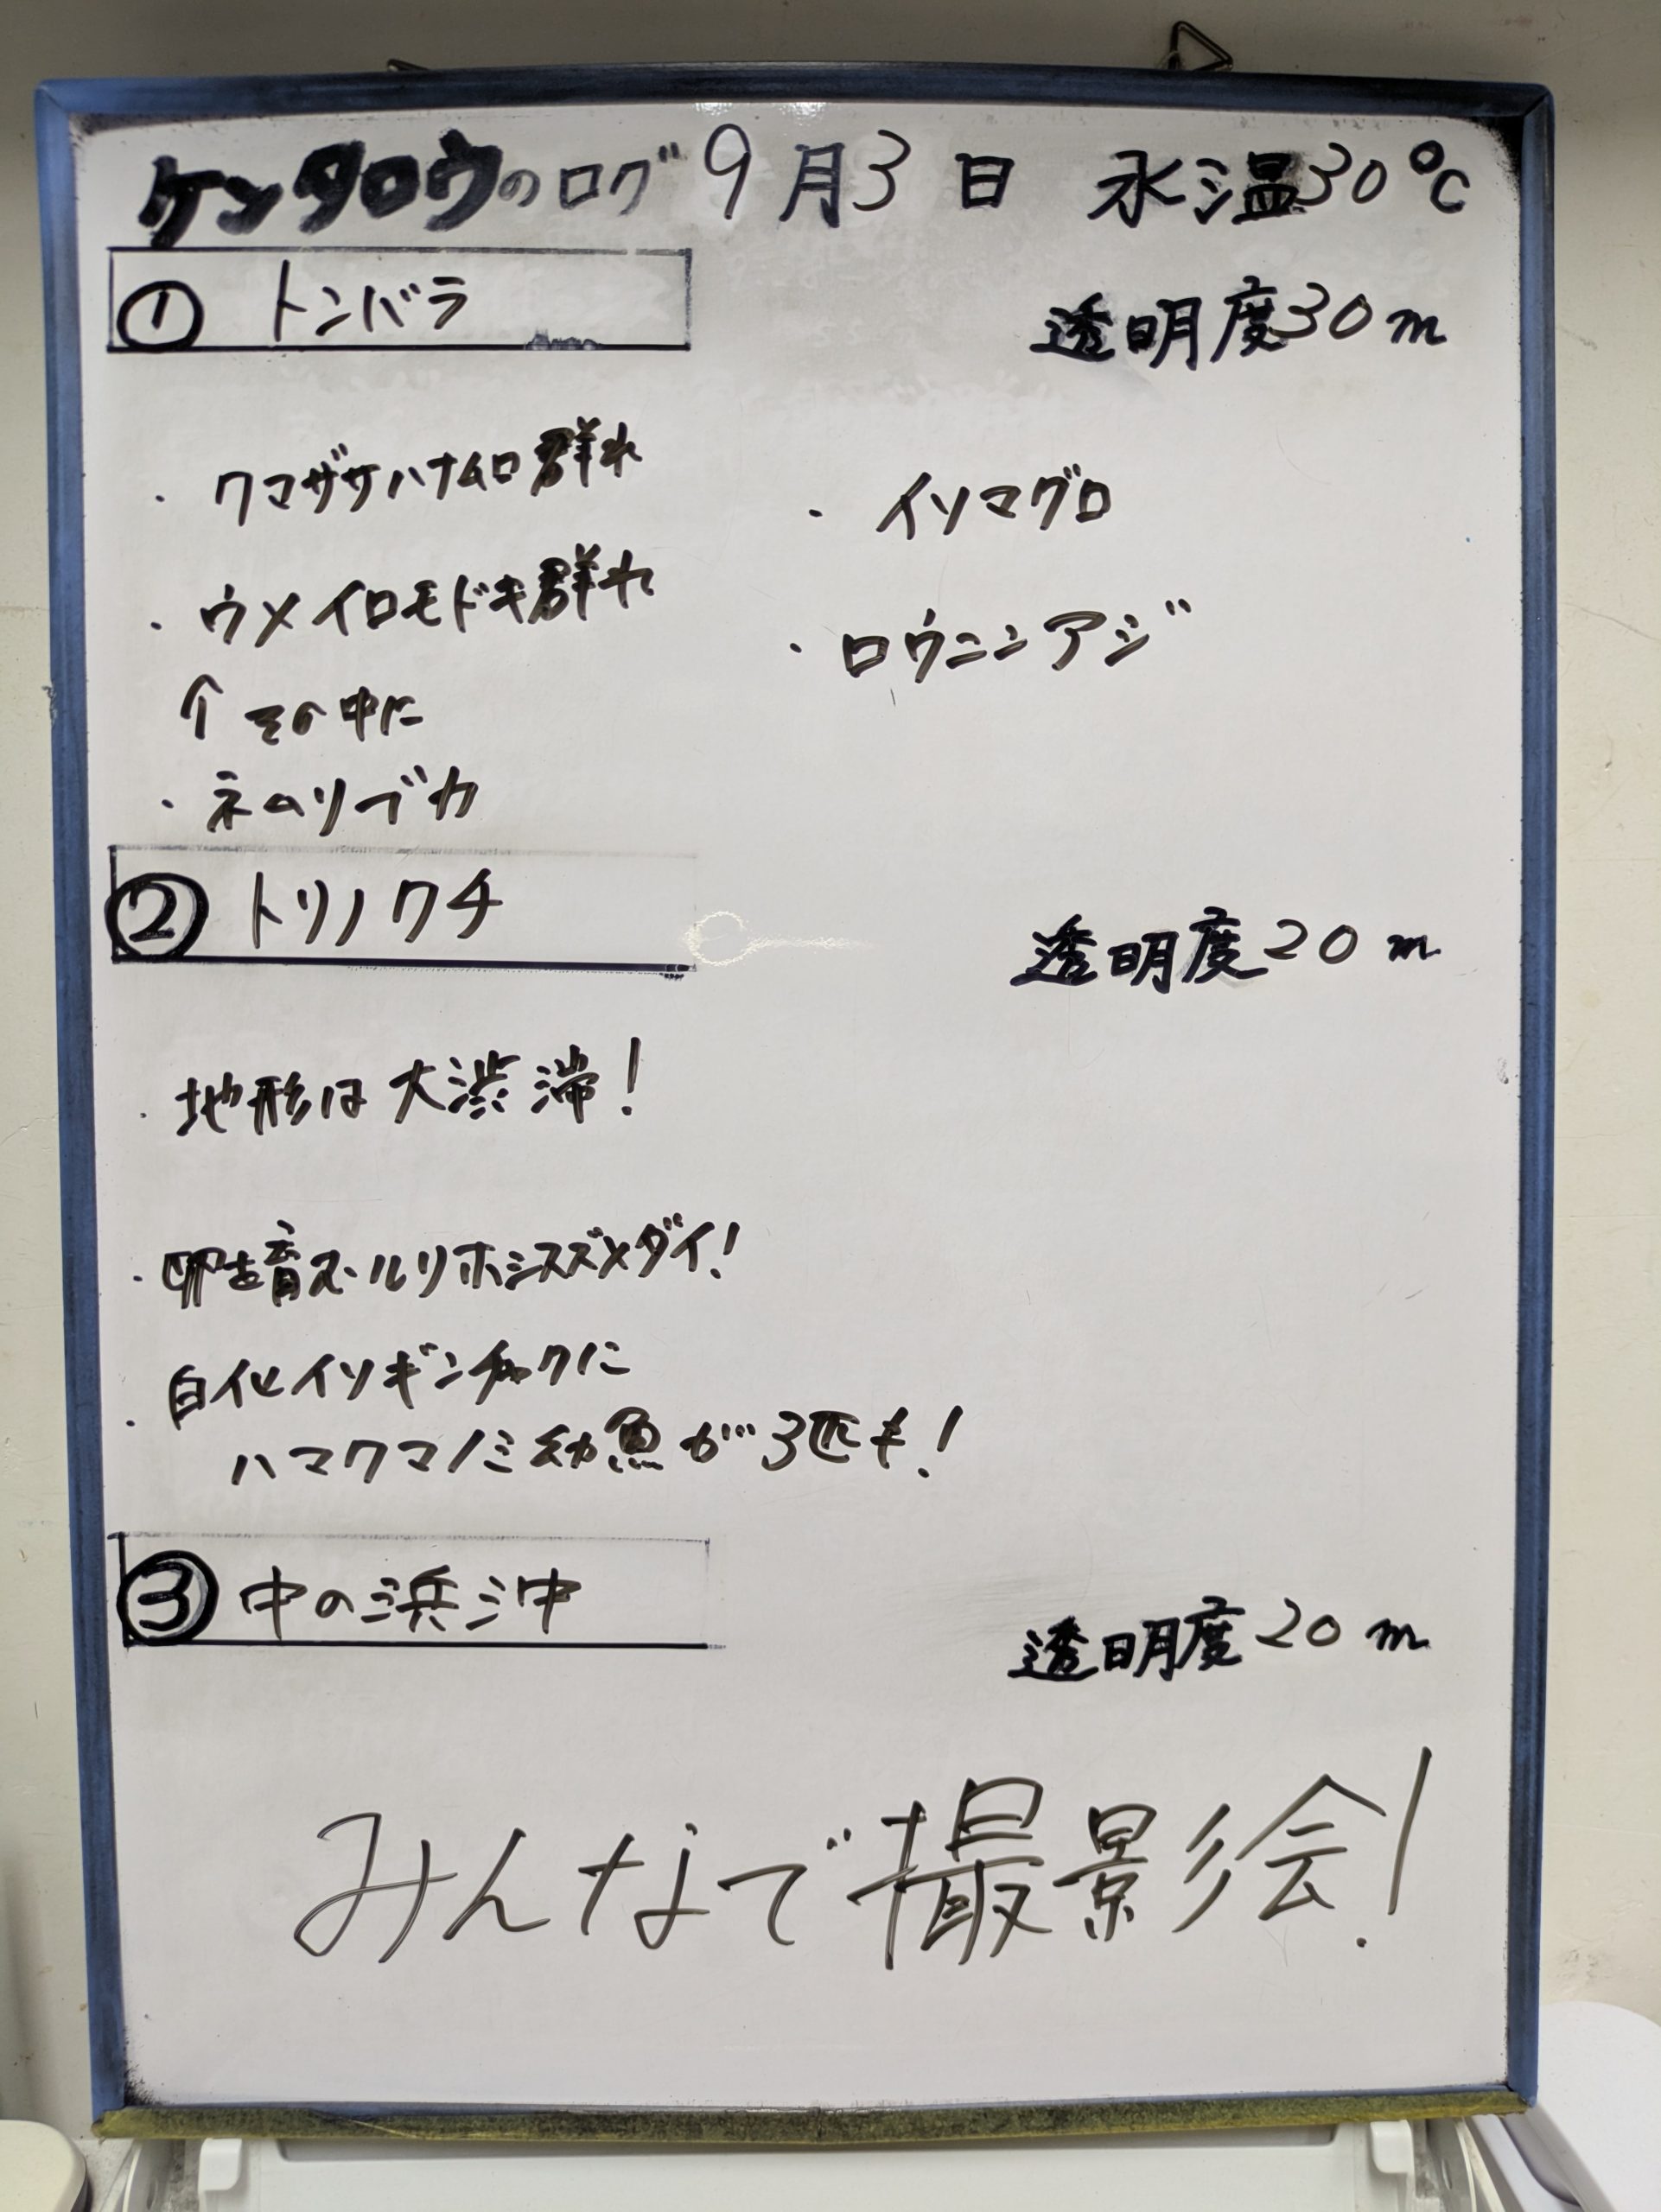 ケンタロウのログ 9月3日 水温30℃
① トンバラ
透明度30m
・クマザサハナムロ群れ
・ウメイロモドキ群れ
↑その中に
・ネムリブカ
・イソマグロ
・ロウニンアジ
② トリノクチ
透明度20m
・地形は大渋滞!
・卵を育てるルリホシスズメダイ!
・白化イソギンチャクに
ハマクマノミ幼魚が3匹も!
③ 中の浜沖
透明度20m
みんなで撮影会!